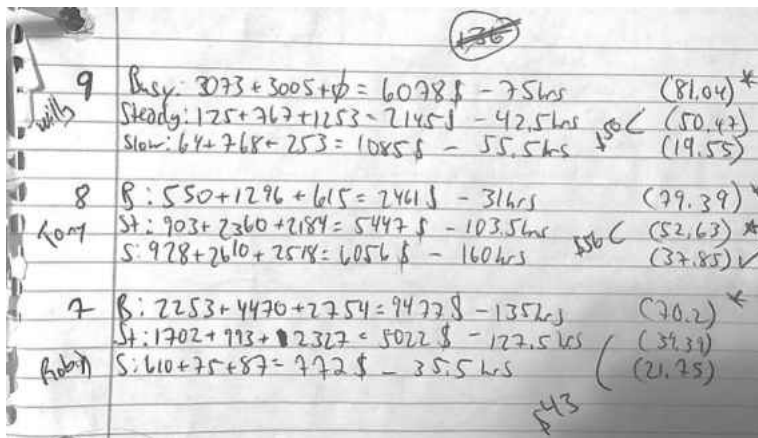 136
9 Busy: 3073 + 3005 + ϕ = 6078 $ - 75hrs (81.04) *
Willy Steady: 125 + 767 + 1253 = 2145 $ - 42.5hrs $50 ( (50.47)
Slow: 64 + 768 + 253 = 1085 $ - 55.5hrs (19.55)
8 B: 550 + 1296 + 615 = 2461 $ - 31hrs (79.39) *
Tom St: 903 + 2360 + 2184 = 5447 $ - 103.5hrs $56 ( (52.63) *
S: 928 + 2610 + 2518 = 6056 $ - 160hrs (37.85) ✓
7 B: 2253 + 4470 + 2754 = 9477 $ - 135hrs (70.2) *
St: 1702 + 993 + 2327 = 5022 $ - 127.5hrs (39.39)
Robin S: 610 + 75 + 87 = 772 $ - 35.5hrs ( (21.75)
$43